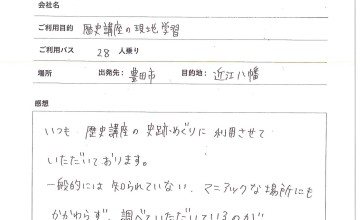 会社名
ご利用目的 歴史講座の現地学習
ご利用バス 28 人乗り
場所 出発先： 豊田市 目的地： 近江八幡
感想
いつも 歴史講座の史跡めぐりに利用させて
いただいております。
一般的には知られていない、マニアックな場所にも
かかわらず、調べていただいているのが